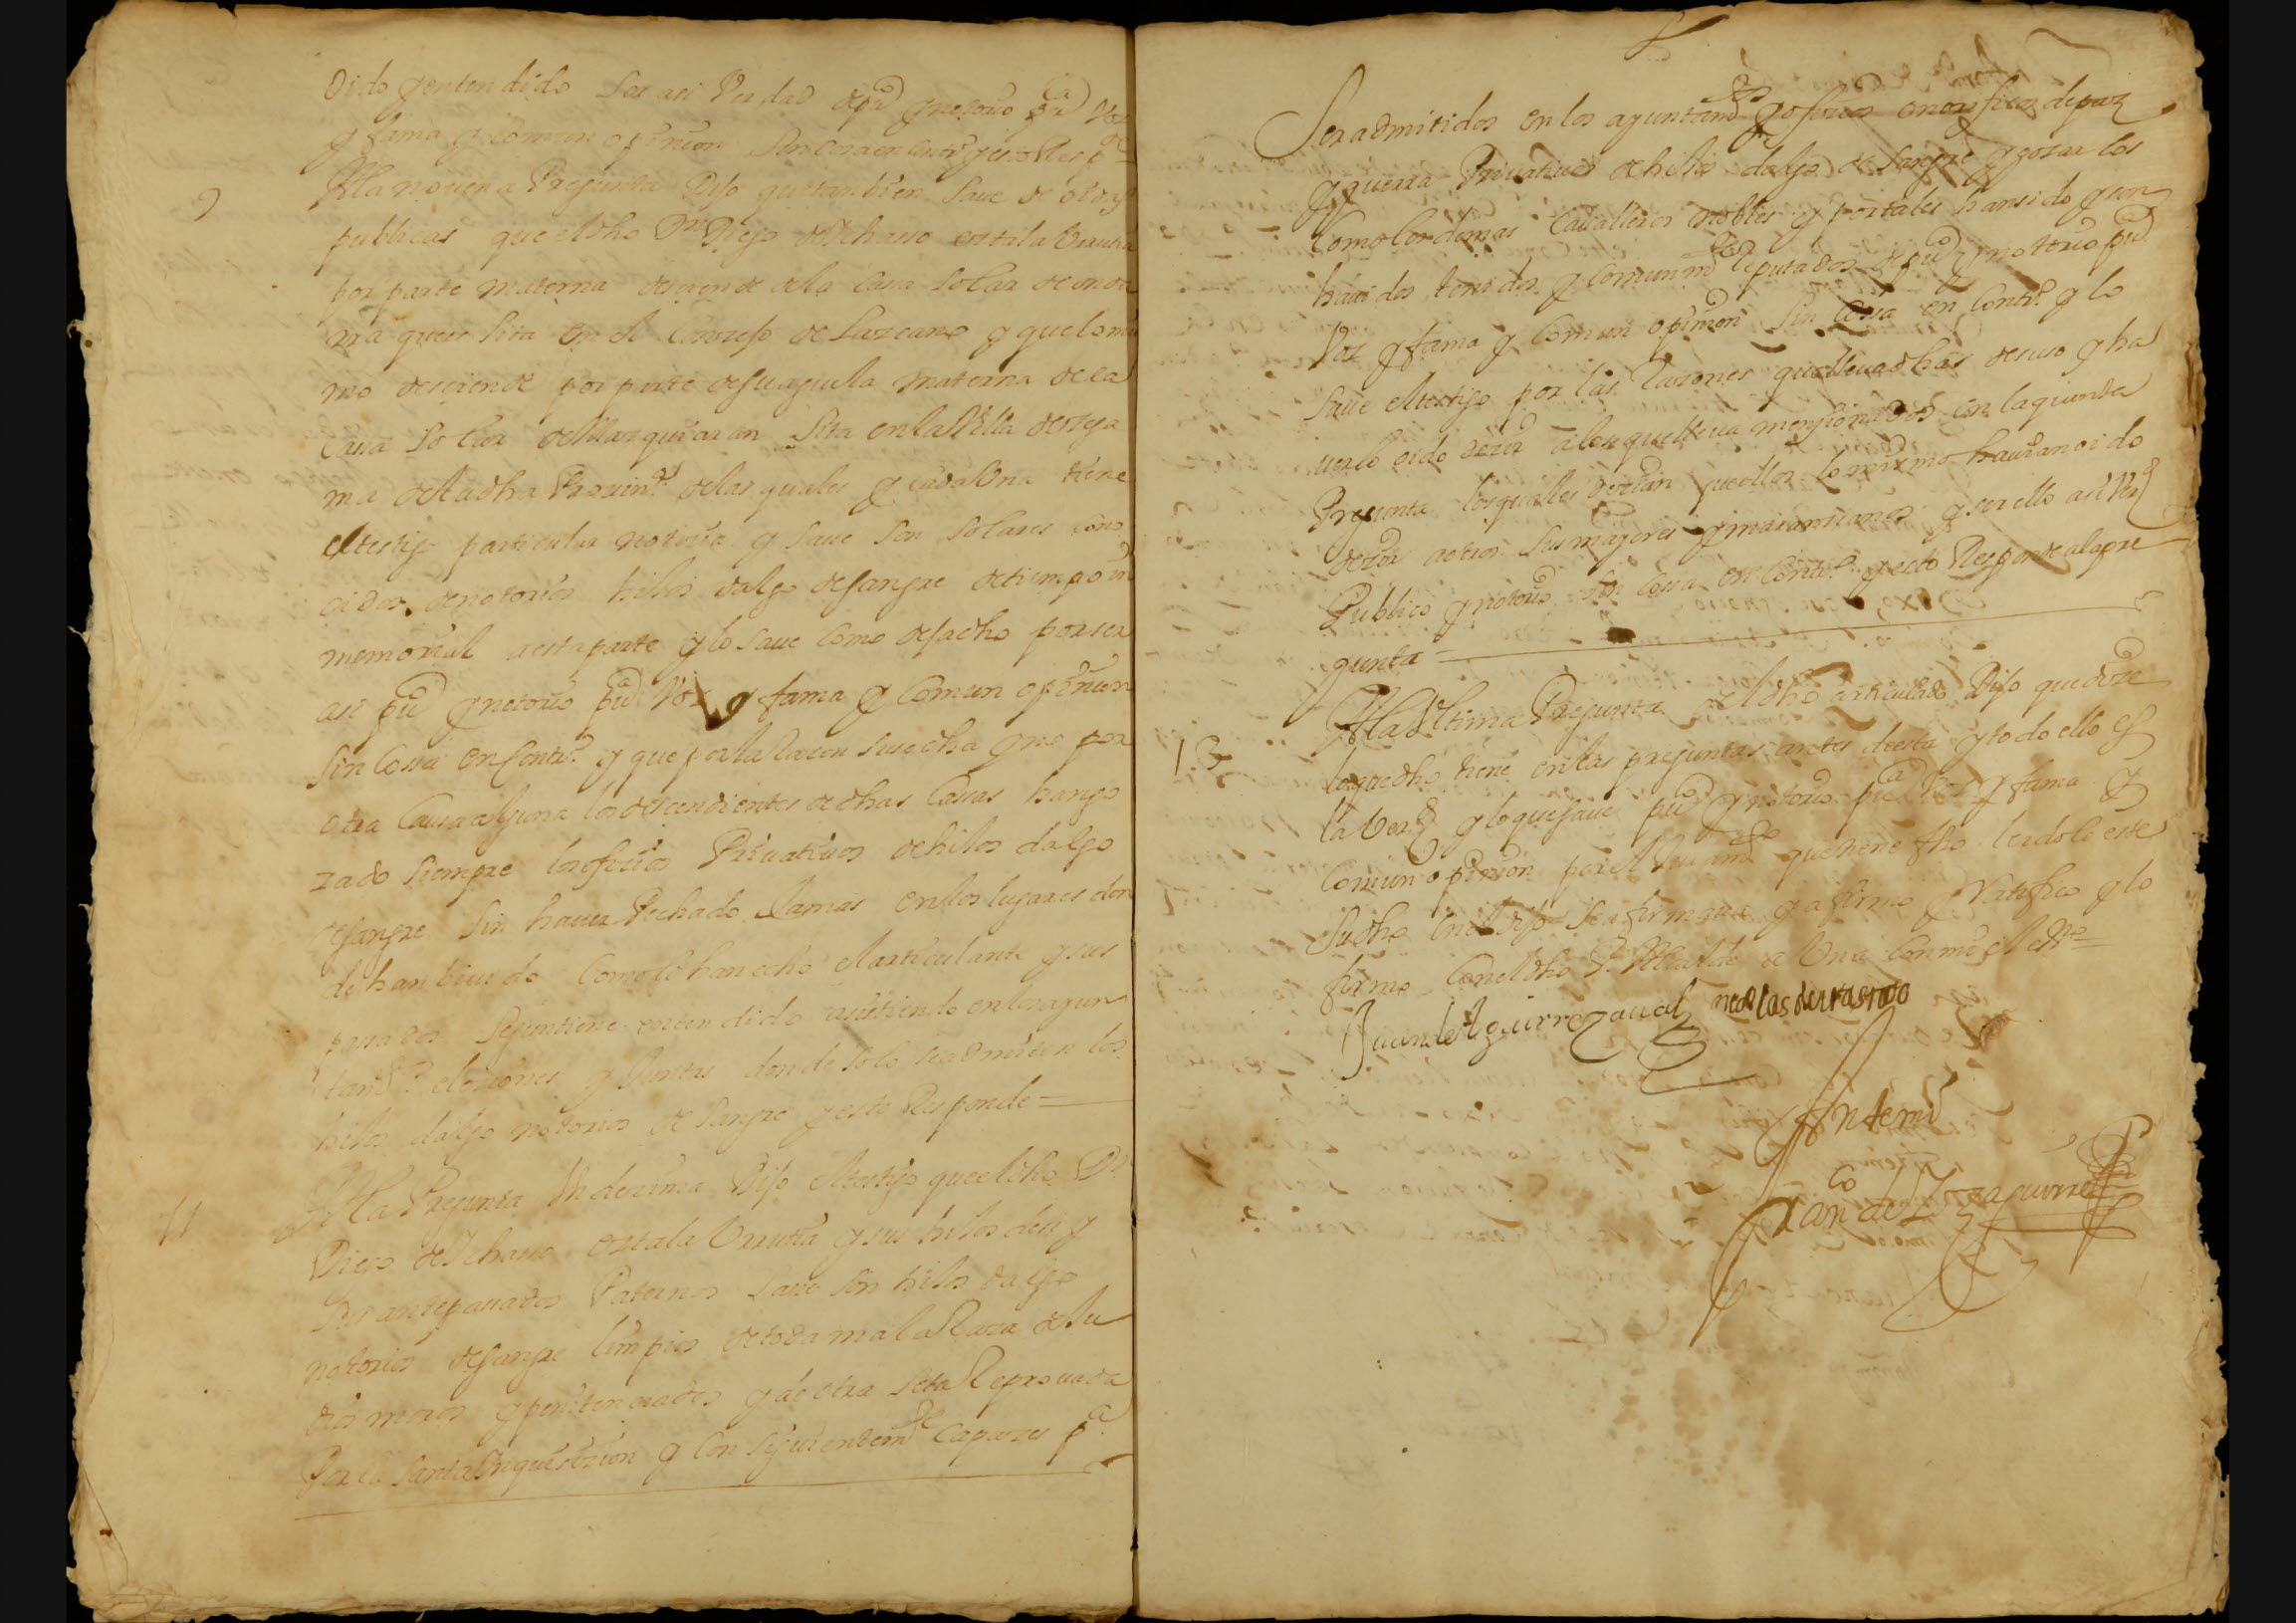 oido y entendido ser asi Verdad y puco y notorio pca Voz
y fama y comun opinion sin cosa en contro y esto Respde
9
A la novena Pregunta Dijo que tambien save de oydas
publicas que el dho Dn Diego de Echasso
por parte materna desciende de la Casa solar de
sita en el Conzejo de Lazcano y que lo mis
mo desciende por parte de su aguela materna de la
Casa solar de Marquiaran sita en la Villa de
ma de la dha Provina de las quales y cada Una tiene
el testigo particular notizia y save son solares cono
cidos de notorios hijos dalgo de sangre de tiempo in
memorial a esta parte y lo save como de fecho por ser
asi puco y notorio pca Voz y fama y Comun opinion
sin Cossa en Contro y que por la razon susodha y no por
otra Causa alguna los descendientes de dhas Cassas han go
zado siempre los ofizios Privativos de hijos dalgo
de sangre sin haver Pechado Jamas en los lugares don
de han bivido Como lo han echo el articulante y sus
pasados segun tiene entendido asistiendo en los ayun
tamtos elecziones y Juntas donde solo se admiten los
hijos dalgo notorios de sangre y esto Responde =
11
A la Pregunta Undezima Dijo el testigo que el dho Dn
Diego de Echasso y sus hijos del y
sus antepasados Paternos save son hijos dalgo
notorios de sangre limpios de toda mala Raza de Ju
dios moros y penitenciados y de otra seta Reprovada
Por la Santa Inquisizion y Consiguientemte Capazes pa
Ser admitidos en los ayuntamtos y ofizios onorificos de paz
y guerra Privativos de hijos dalgo de Sangre y gozar los
Como los demas Cavalleros nobles y por tales han sido y son
havidos tenidos y Comunmte Reputados y puco y notorio pca
Voz y fama y Comun opinion sin Cossa en Contro y lo
save el testigo por las Razones que lleva dhas de suso y ha
verlo oido dezir a los que lleva menzionados en la quinta
Pregunta los quales dezian que ellos lo mismo havian oido
dezir a otros sus mayores y mas anzianos y ser ello asi Verd
Publico y notorio sin Cossa en Contro y esto Responde a la pre
gunta =
13
A la Ultima Pregunta del dho articulado Dijo que dize
lo que dho tiene en las preguntas antes desta y todo ello es
la Verd y lo que save puco y notorio pca Voz y fama y
Comun opinion por el Juramto que tiene fho leidole este
su dho en el dijo se afirmava y afirmo y Ratifico y lo
firmo Con el dho Sr Alcalde de Una Con mi el Esno =
Juan de Aguirrezaval
Ante mi
Franco de Yzaguirre